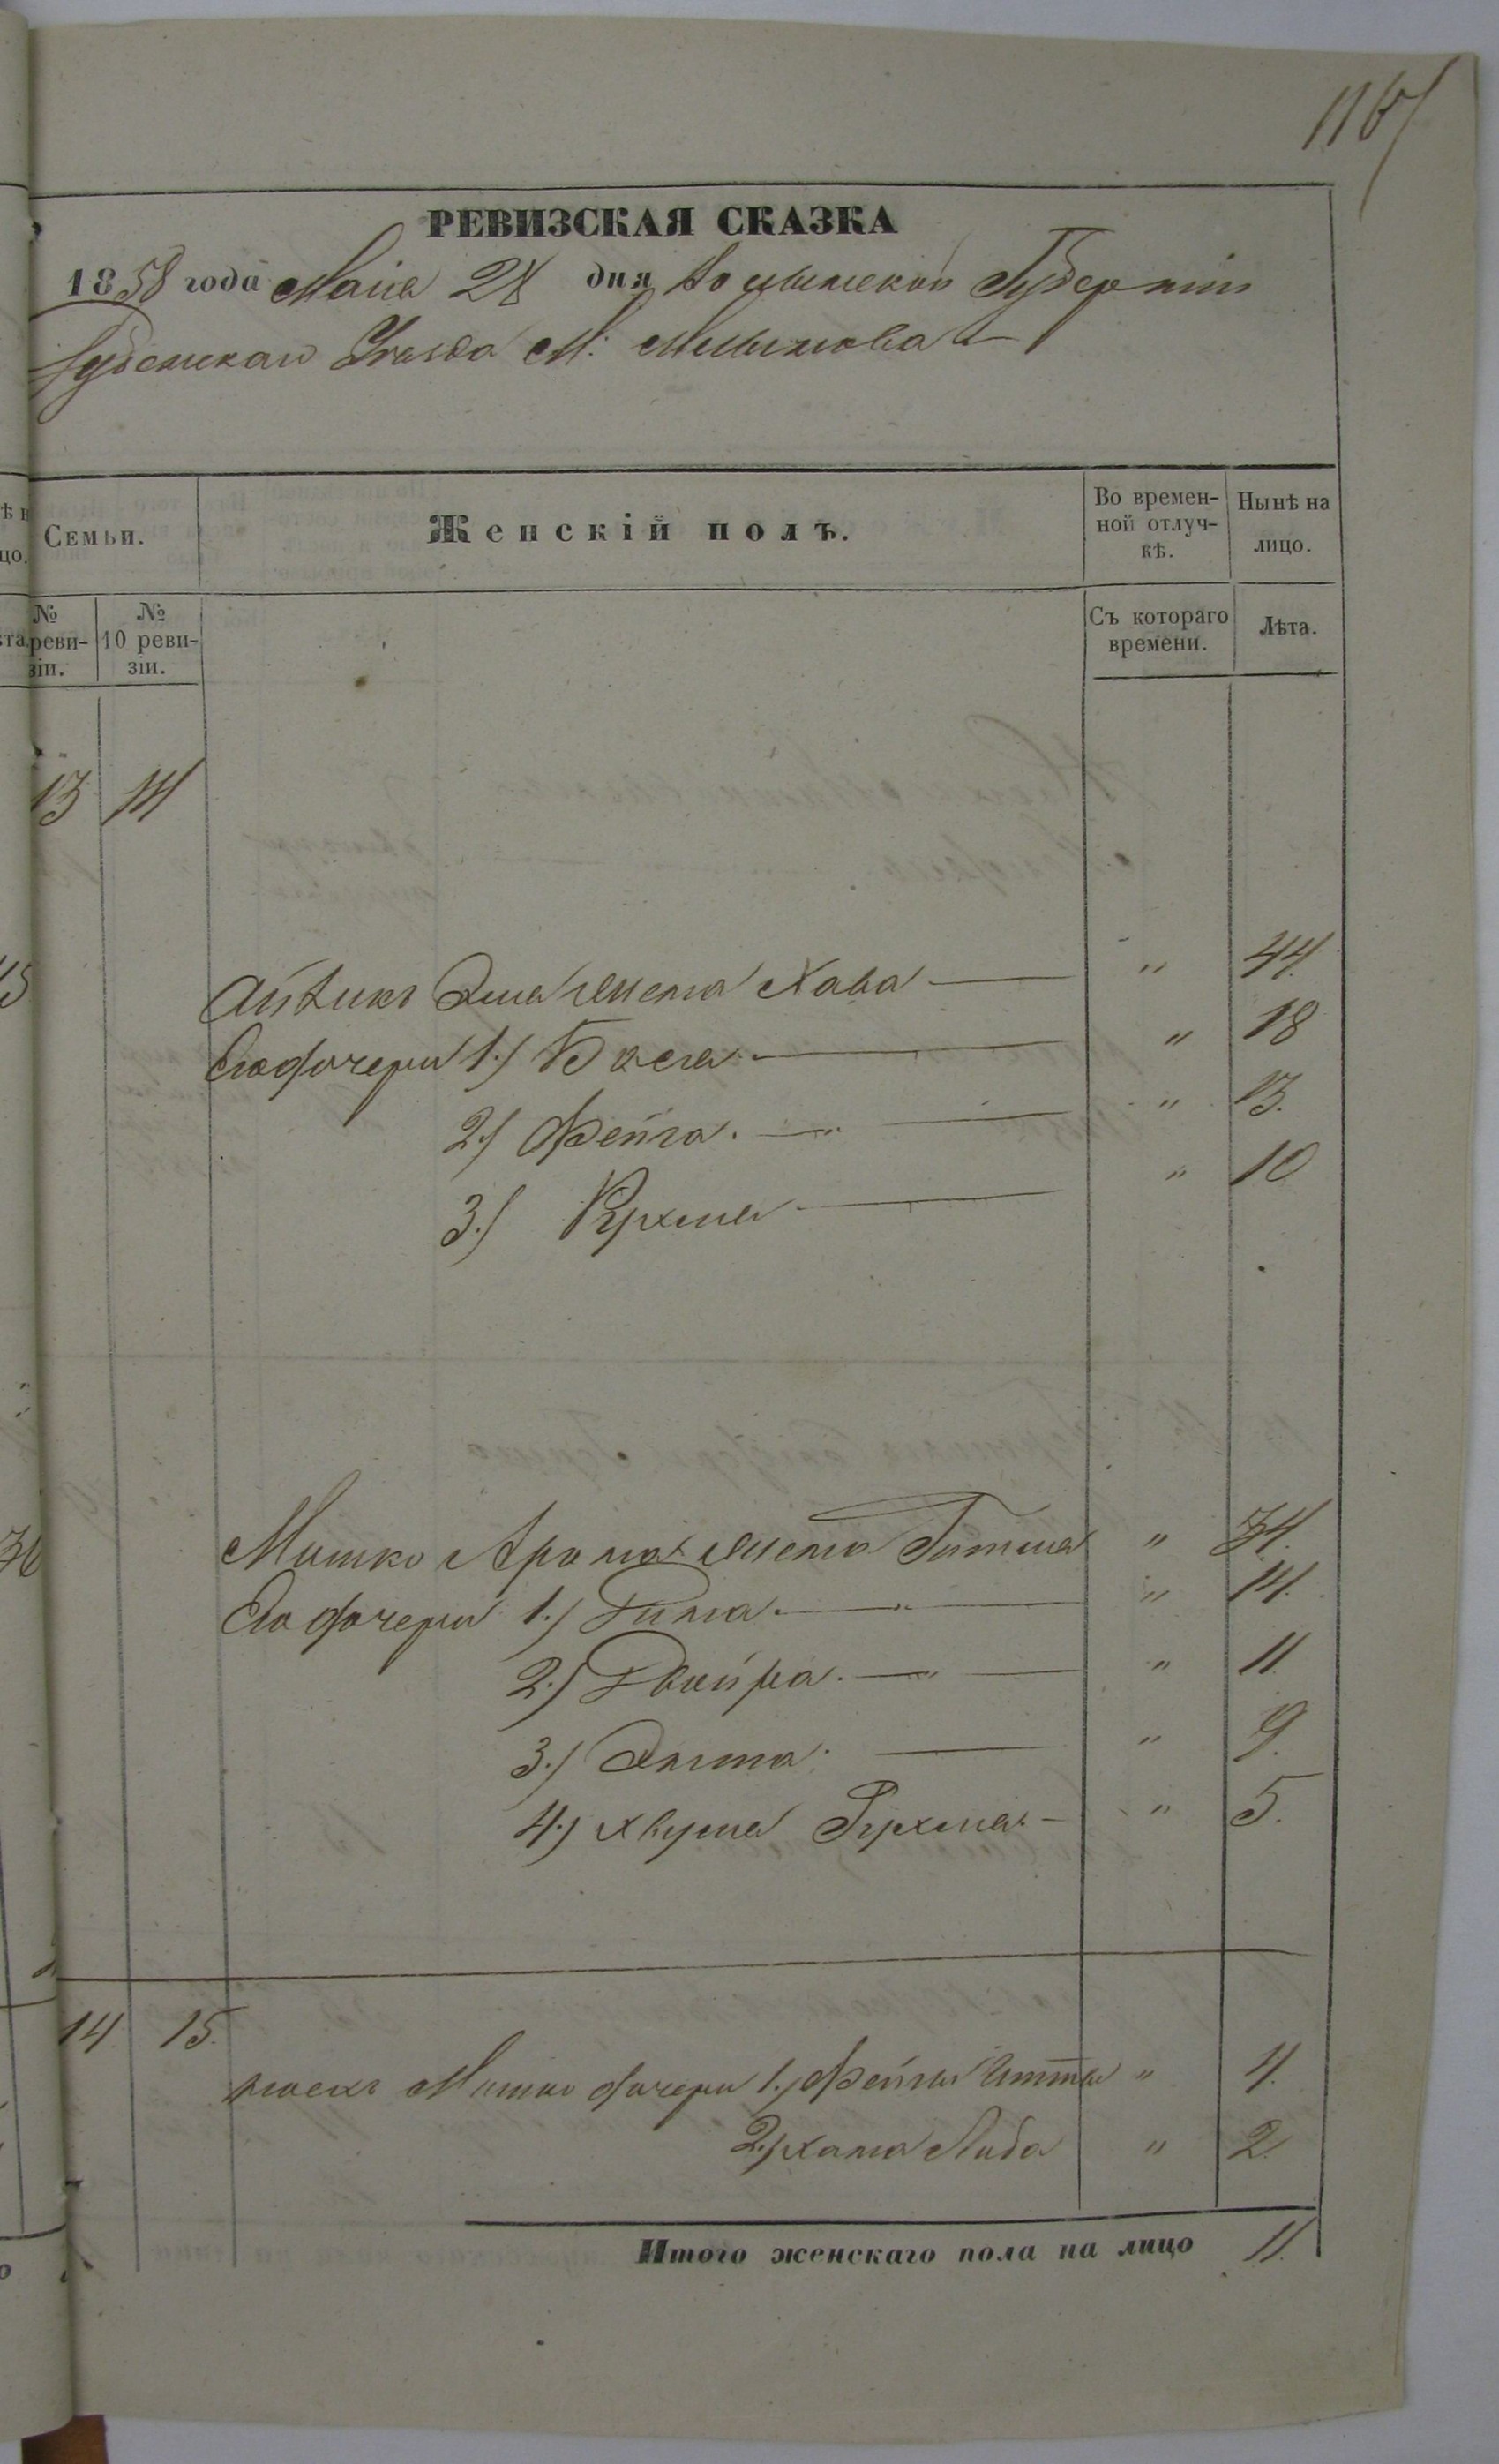 116
РЕВИЗСКАЯ СКАЗКА
1858 года Маiя 28 дня Волынской Губернiи
Дубенскаго Уѣзда М. Млынова
Семьи.
Женскій полъ.
Во времен-
ной отлуч-
кѣ.
Нынѣ на
лицо.
№
реви-
зіи.
№
10 реви-
зіи.
Съ котораго
времени.
Лѣта.
13 14
Айзикъ жена Хава — „ 44.
Его дочери 1.) Бася — „ 18
2.) Фейга. — „ 13.
3.) Рухля — „ 10
Мошко Арона жена Гитля „ 34.
Его дочери 1.) — „ 14.
2.) Двойра. — „ 11
3.) — „ 9.
4.) Рухля — „ 5.
14 15.
Мошко дочери 1.) Фейга Итта „ 4.
2.) Хана Либа „ 2.
Итого женскаго пола на лицо 11.